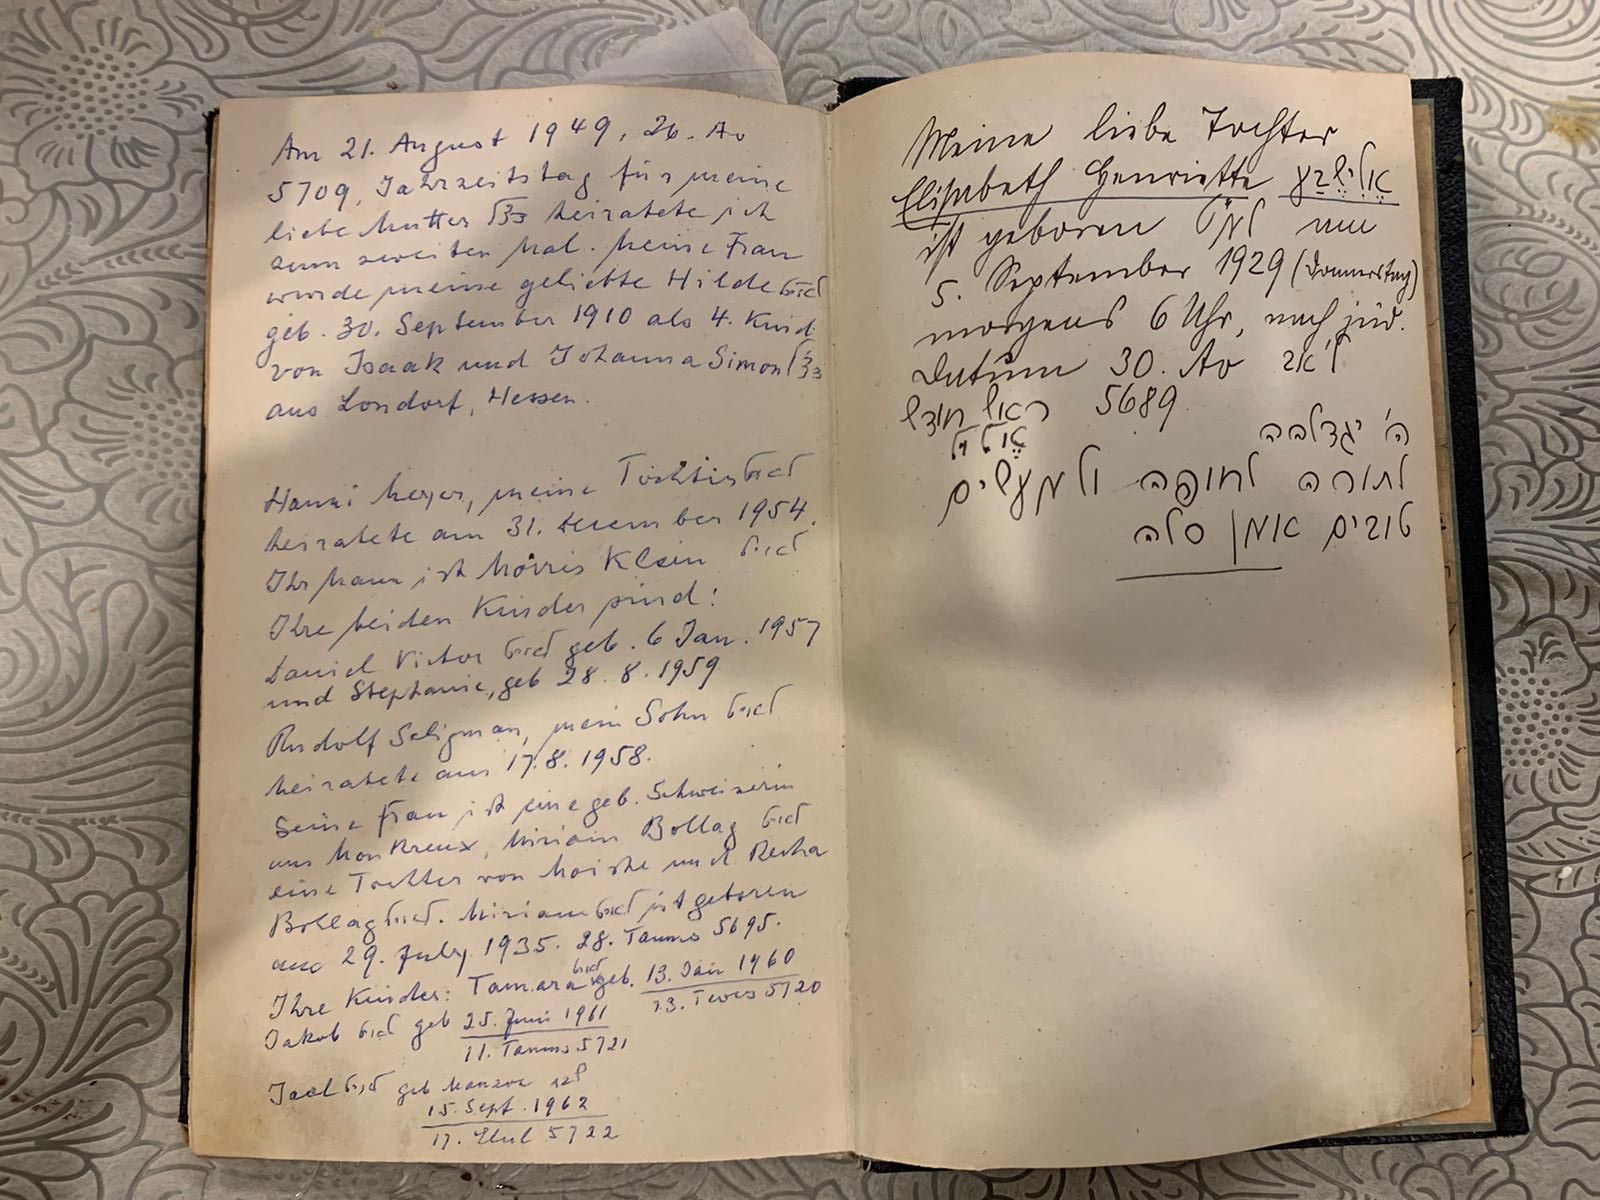 Am 21. August 1949, 26. Av
5709, Jahrzeitstag für meine
liebe Mutter ז״ל heiratete ich
zum zweiten Mal. Meine Frau
wurde meine geliebte Hilde
geb. 30. September 1910 als 4. Kind
von Isaak und Johanna Simon ז״ל
aus Londorf, Hessen.
Hanni Meyer, meine
heiratete am 31. Dezember 1954.
Ihr Mann ist Morris Klein
Ihre beiden Kinder sind:
Daniel Victor geb. 6 Jan. 1957
und Stephanie, geb 28.8.1959
Rudolf Seligman, mein Sohn
heiratete am 17.8.1958.
Seine Frau ist eine geb. Schweizerin
aus Montreux, Miriam Bollag
eine Tochter von Moishe und Recha
Bollag. Miriam ist geboren
am 29. July 1935. 28. Tamus 5695.
Ihre Kinder: Tamara geb. 13. Jan 1960
13. Tewes 5720
Jakob geb 25. Juni 1961
11. Tamus 5721
Jael geb
15. Sept. 1962
17. Elul 5722
Meine liebe Tochter
Elisabeth Henriette אֱלִישֶׁבַע
ist geboren למז״ט am
5. September 1929 (Donnerstag)
morgens 6 Uhr, nach jüd.
Datum 30. Av
ראש חודש 5689
אלול
ה׳ יגדלה
לתורה לחופה ולמעשים
טובים אמן סלה